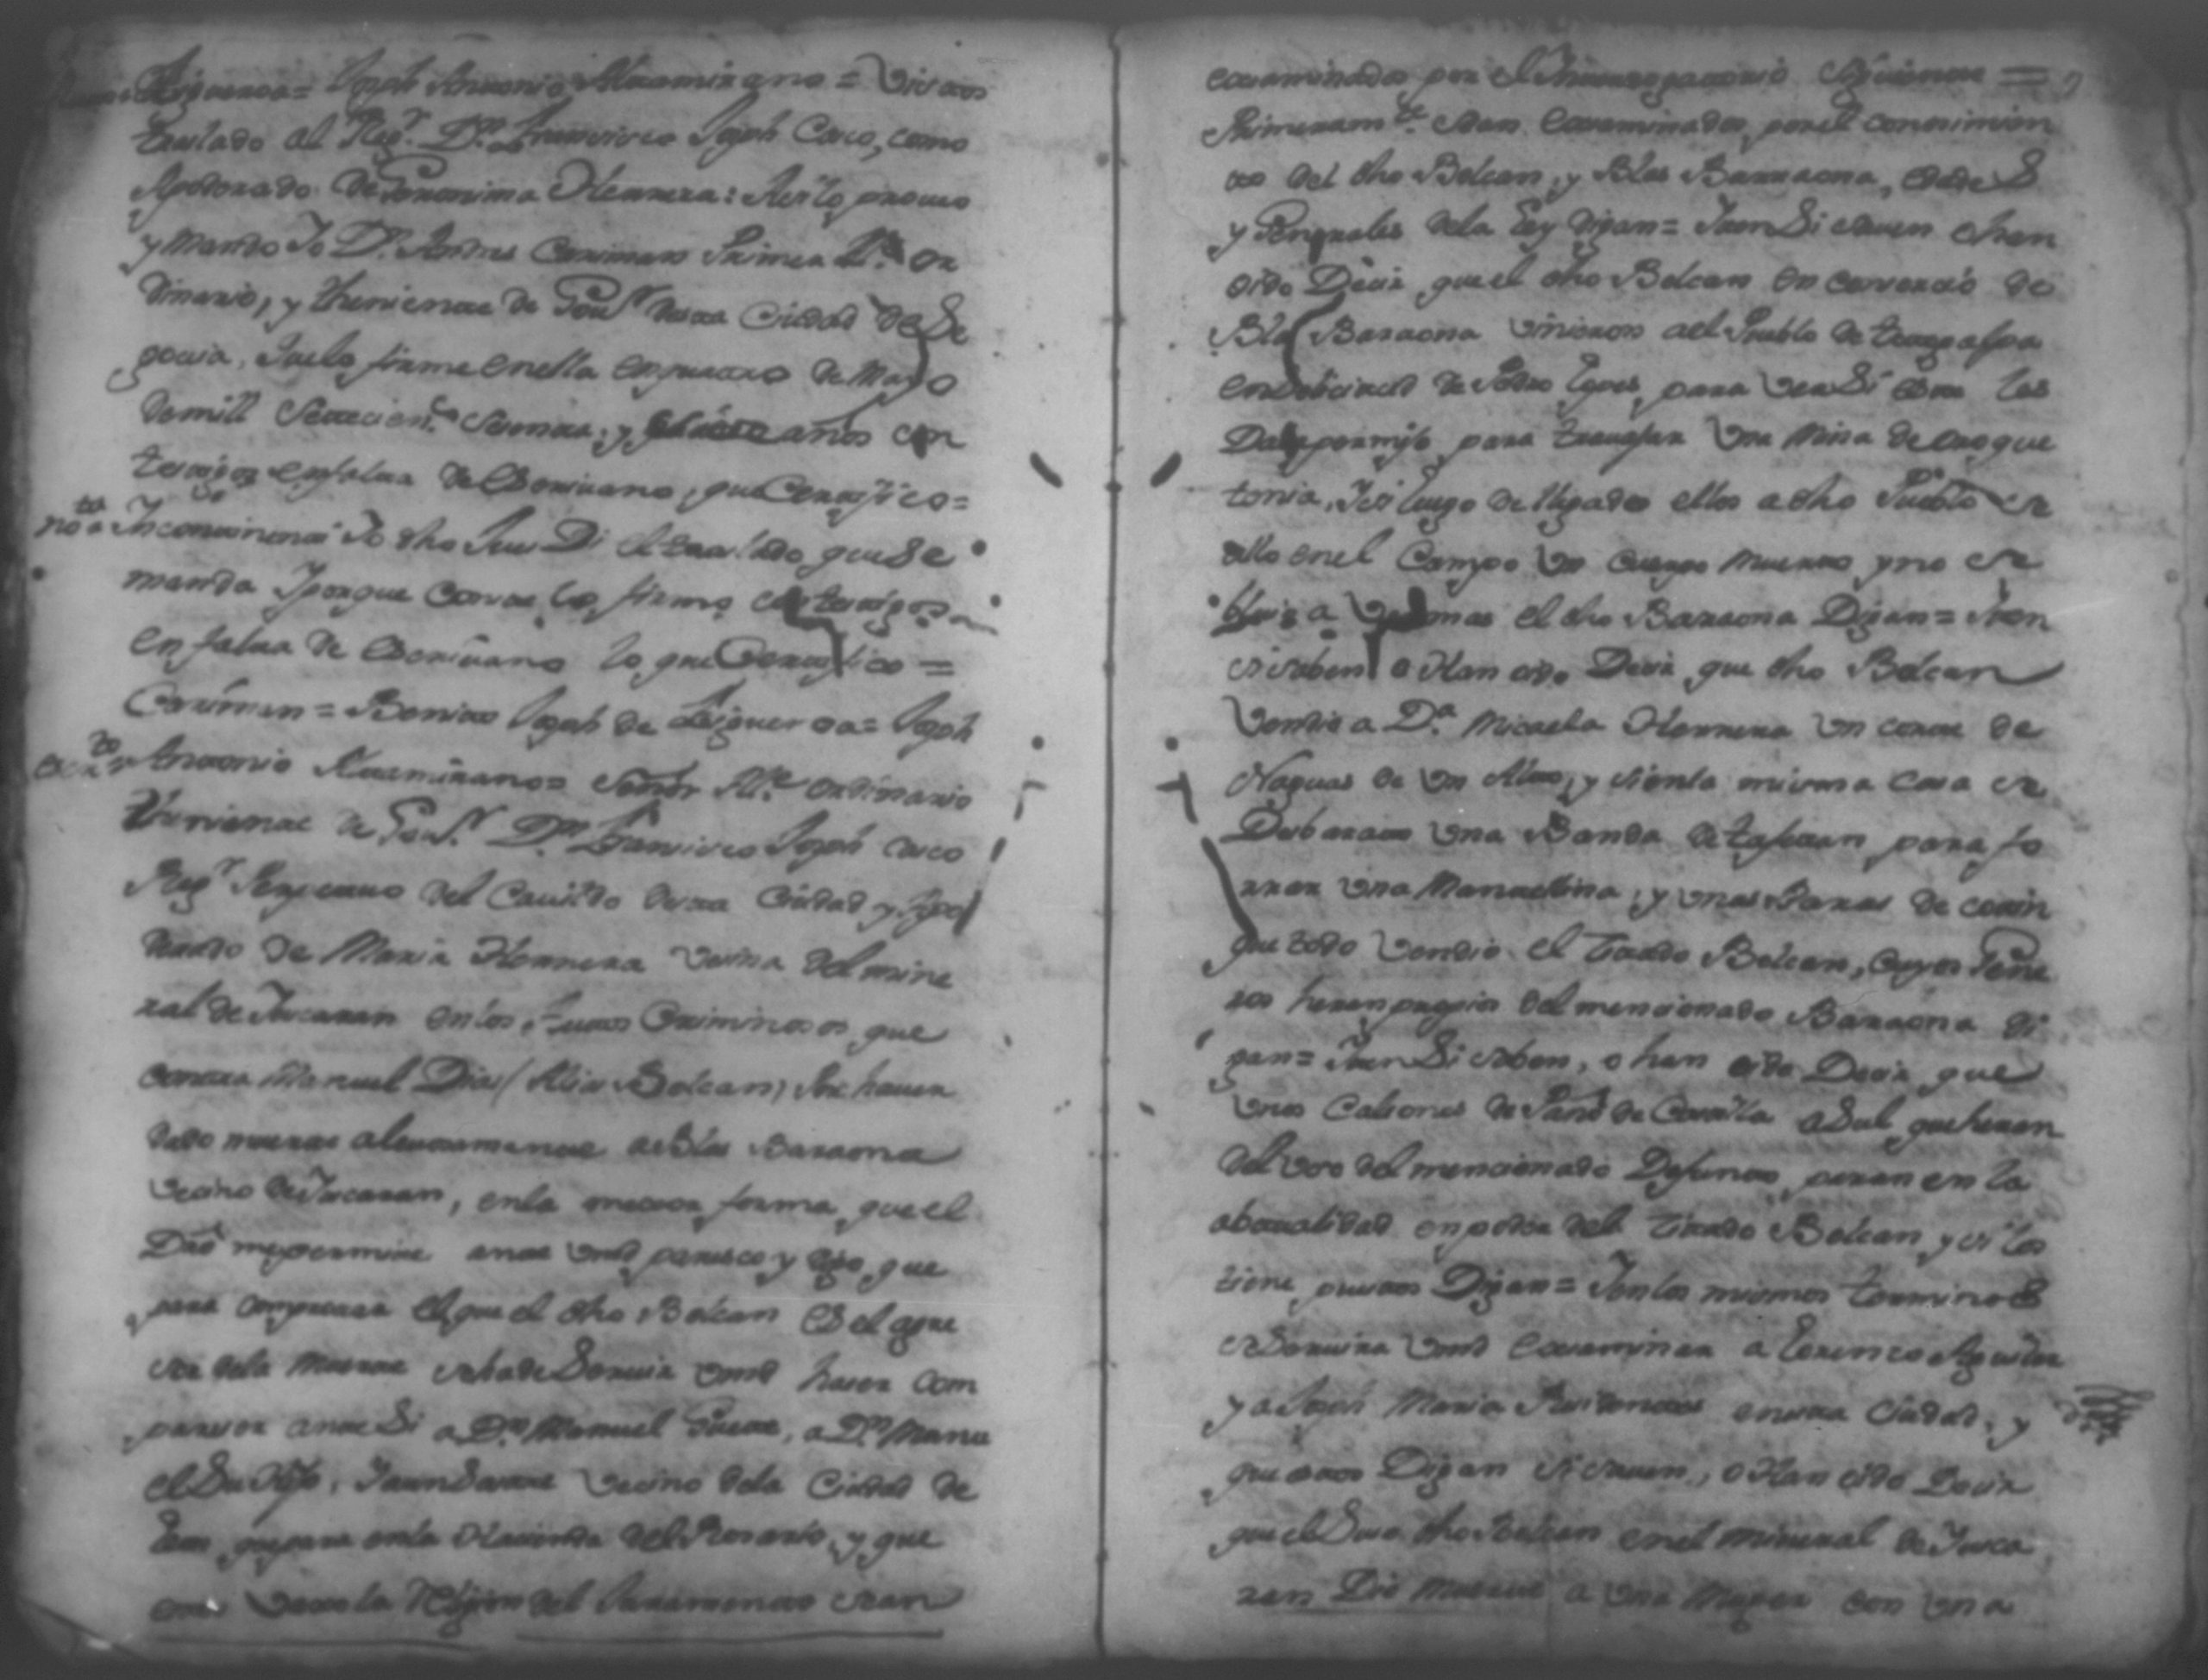 Figueroa = Joseph Antonio Altamirano = Vistos
traslado al Regr. Dn. Francisco Joseph Casco, como
Apoderado de Geronima Herrera: Asi lo proveo
y mando Yo Dn. Andres Cariman Primer Alde. Or
dinario, y Theniente de Govr. desta Ciudad de Se
govia, Y aelo firme en ella en quatro de Mayo
de mill Setecientos Setenta, y años con
testigos en falta de Escrivano, que Certifico =
nota Incontinenti Yo dho Jues Di el traslado que se
manda Y porque Conste lo firmo con testigos
en falta de Escrivano lo que Certifico =
Cariman = Benito Joseph de Figueroa = Joseph
escrito Antonio Altamirano = Señor Alce. ordinario
Theniente de Govr. Dn. Francisco Joseph Casco
Regr. Perpetuo del Cavildo desta Ciudad y Apo
derado de Maria Herrera vecina del mine
ral de Yuscaran en los Autos Criminosos que
contra Manuel Dias (Alias Bolcan) Por haver
dado muerte alevosamente a Blas Baraona
vecino de Yuscaran, en la mejor forma que el
Dro me permite ante Vmd paresco y digo, que
para comprovar el que el dho Bolcan es el agre
sor dela muerte se ha de Servir Vmd haser com
pareser ante Si a Dn. Manuel, a Dn. Manu
el Su hijo, vecino dela Ciudad de
Leon, que para en la Hacienda del Rosario, y que
vajo la Religion del Juramento sean
examinados por el Interrogatorio Siguiente =
Primeramte. sean examinados por el conosimien
to del dho Bolcan, y Blas Barraona, edad
y Generales dela Ley digan = Yten Si saven o han
oido Decir que el dho Bolcan en consorcio de
Blas Baraona vinieron ael Pueblo de
en solicitud de Pedro, para ver Si este les
Daba permiso para travajar Una Mina de oro que
tenia, Y si luego de llegados ellos a dho Pueblo se
allo en el Campo Un Cuerpo Muerto y no se
bolvio a ver mas el dho Baraona Digan = Yten
si saben o Han oido Decir que dho Bolcan
Vendio a Da. Micaela Herrera Un corte de
Naguas de, y si en la misma Casa se
Desbarato Una Banda de tafetan para fo
rrar una Mantellina, y
que todo vendio el citado Bolcan, cuyos Gene
ros heran propios del mencionado Baraona di
gan = Yten Si saben, o han oido Decir que
Unos Calsones de Paño de Castilla asul que heran
del uso del mencionado Defunto paran en la
actualidad en poder del citado Bolcan y si los
tiene puestos Digan = Y en los mismos terminos
se Servira Vmd examinar a Lorenzo Aguilar
y a Joseph Maria Residentes en esta Ciudad, y
que estos Digan si saven, o Han oido Decir
que el Suso dho Bolcan en el mineral de Yusca
ran Dio Muerte a Una Muger con Una